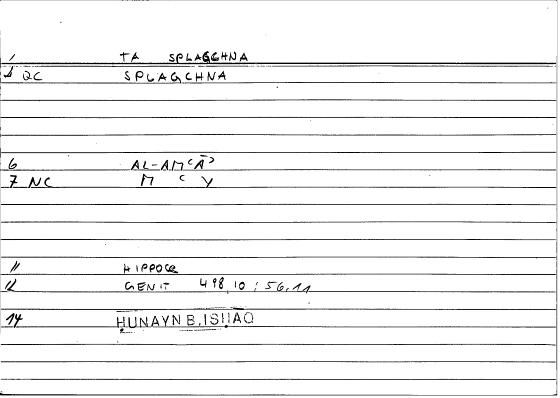 1 TA SPLAGCHNA
2 QC SPLAGCHNA
6 AL-AMʿĀʾ
7 NC M ʿ Y
11 HIPPOCR
12 GENIT 498,10 ; 56,11
14 ḤUNAYN B. ISḤĀQ